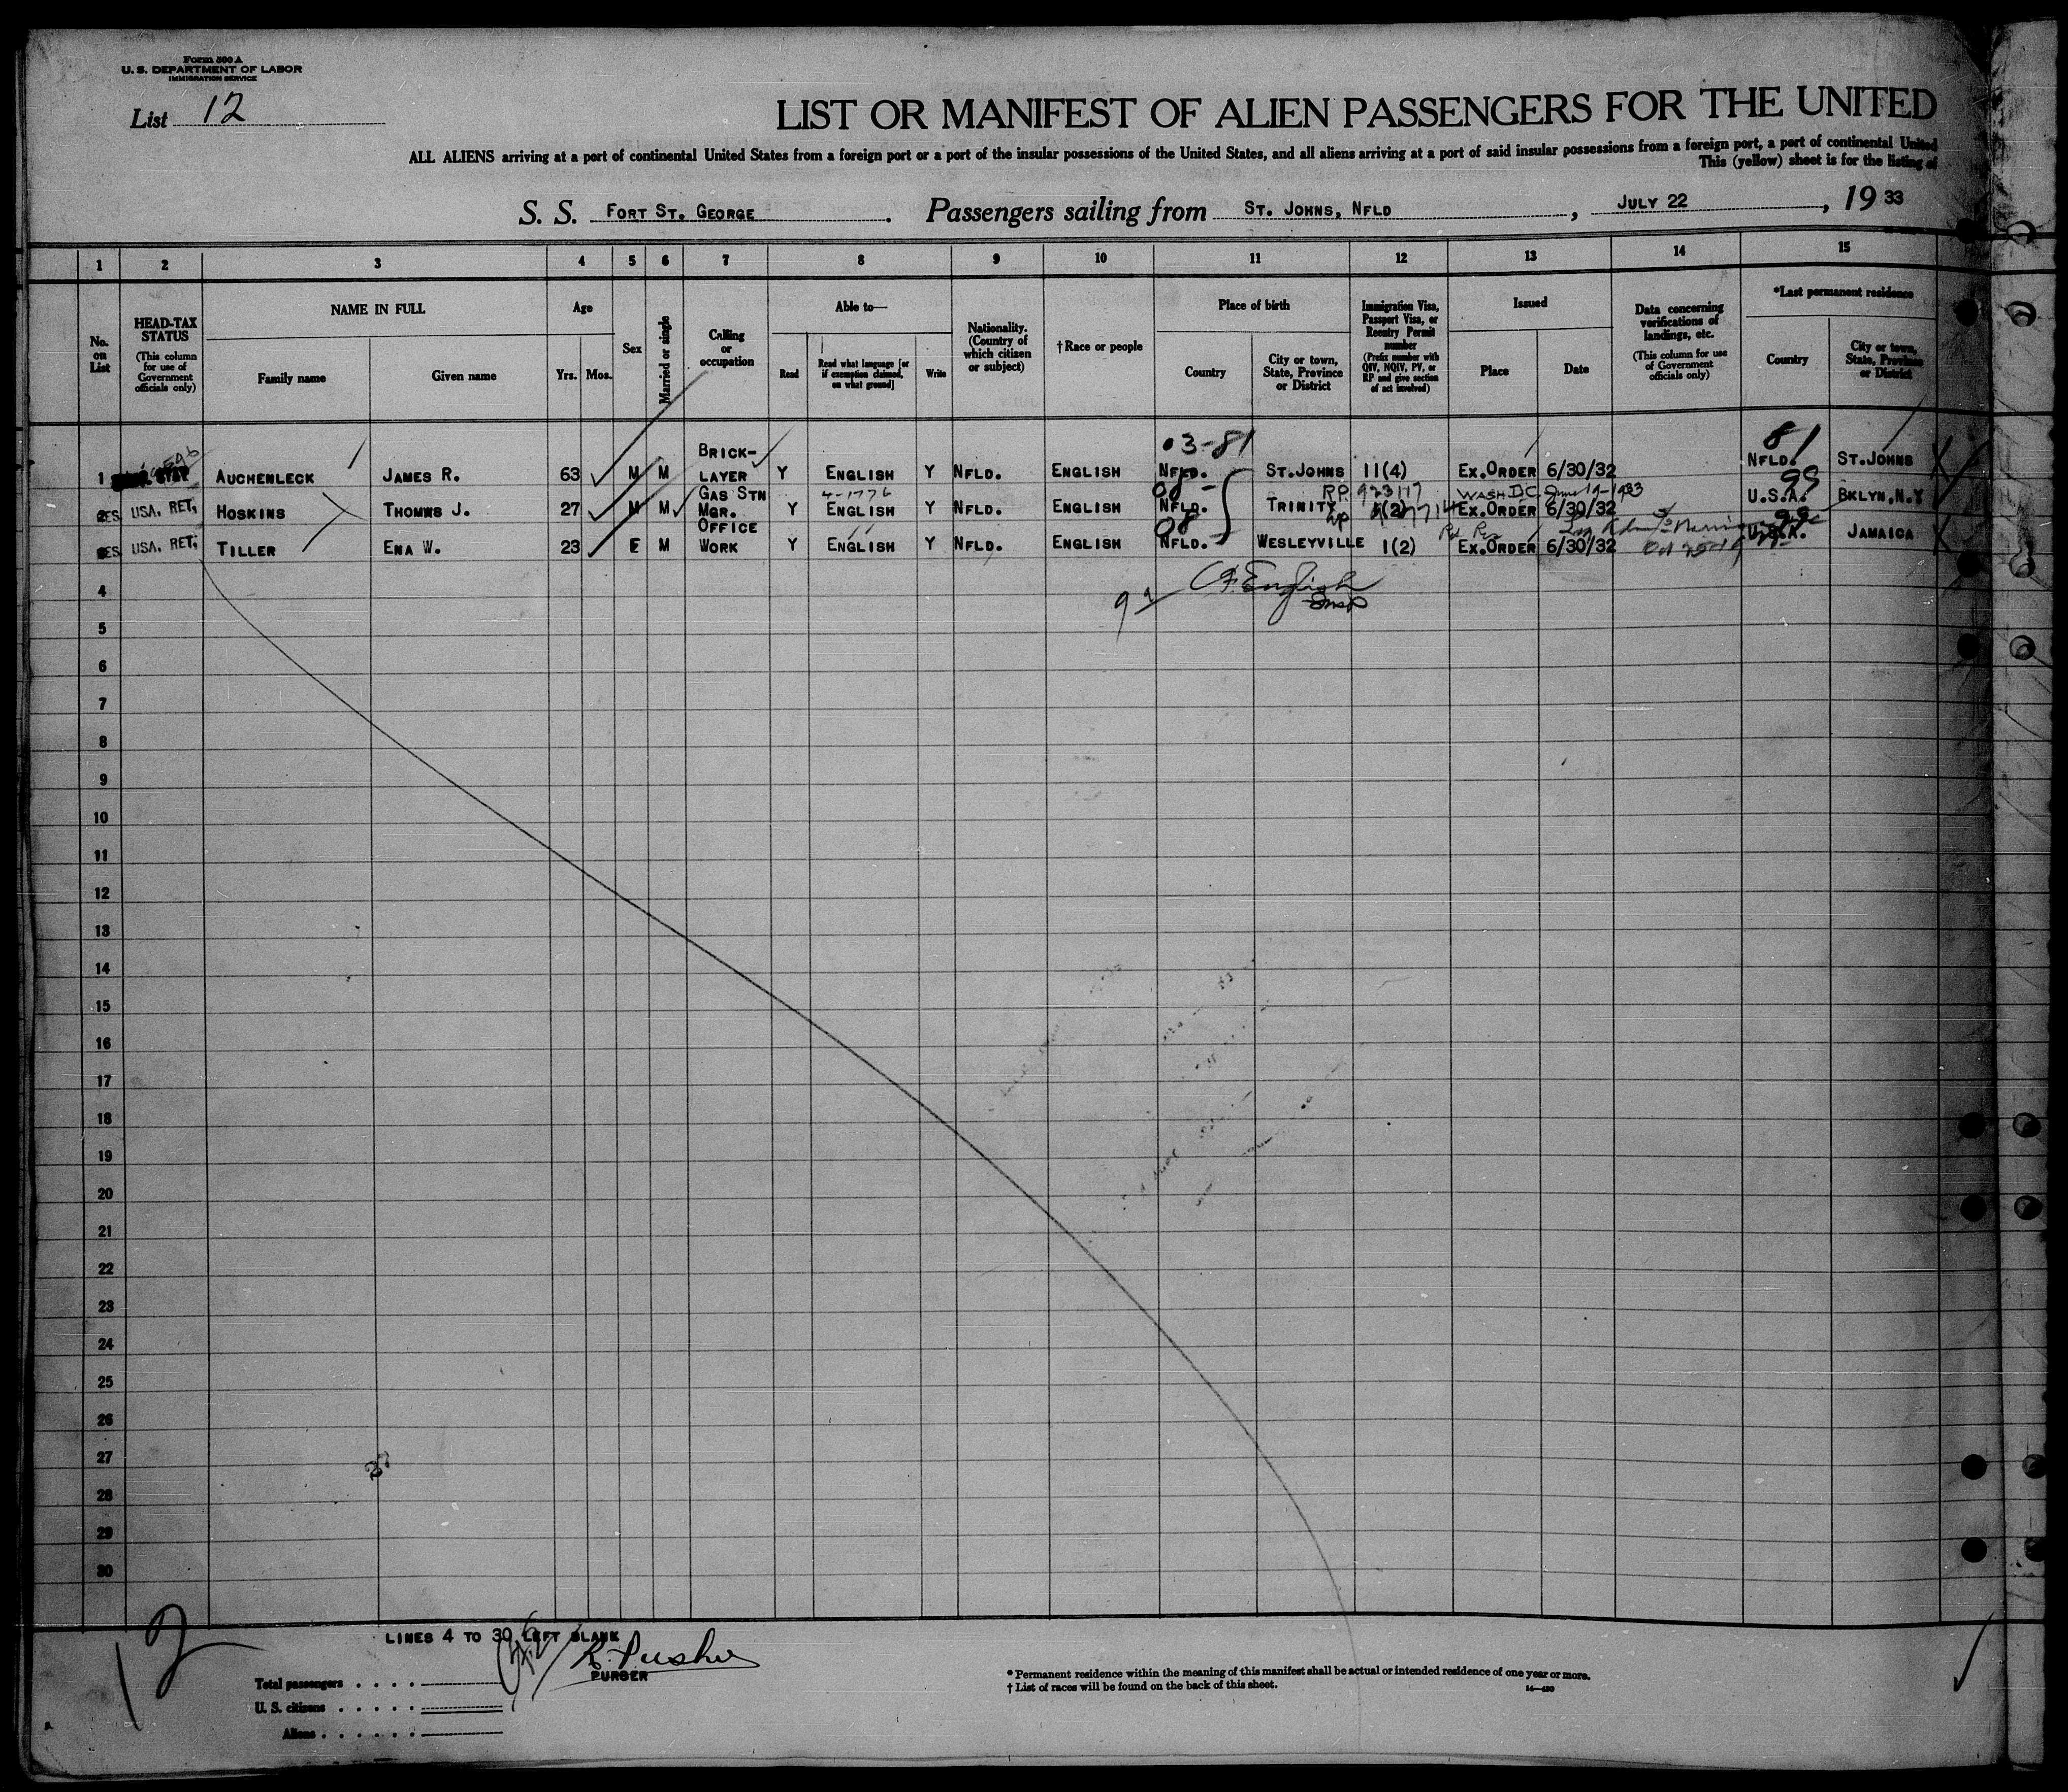 Form 500 A
U. S. DEPARTMENT OF LABOR
IMMIGRATION SERVICE
List 12
LIST OR MANIFEST OF ALIEN PASSENGERS FOR THE UNITED
ALL ALIENS arriving at a port of continental United States from a foreign port or a port of the insular possessions of the United States, and all aliens arriving at a port of said insular possessions from a foreign port, a port of continental United
This (yellow) sheet is for the listing of
S. S. FORT ST. GEORGE . Passengers sailing from ST. JOHNS, NFLD , JULY 22 , 19 33
1 2 3 4 5 6 7 8 9 10 11 12 13 14 15
No. on List
HEAD-TAX STATUS (This column for use of Government officials only)
NAME IN FULL
Family name Given name
Age
Yrs. Mos.
Sex
Married or single
Calling or occupation
Able to—
Read Read what language [or if exemption claimed, on what ground] Write
Nationality. (Country of which citizen or subject)
† Race or people
Place of birth
Country City or town, State, Province or District
Immigration Visa, Passport Visa, or Reentry Permit number (Prefix number with QIV, NQIV, PV, or RP and give section of act involved)
Issued
Place Date
Data concerning verifications of landings, etc. (This column for use of Government officials only)
*Last permanent residence
Country City or town, State, Province or District
03-81 81
1 AUCHENLECK JAMES R. 63 M M BRICK-LAYER Y ENGLISH Y NFLD. ENGLISH NFLD. ST.JOHNS 11(4) EX.ORDER 6/30/32 NFLD. ST.JOHNS
08 4-1776 R.P. 923117 WASH D.C. June 19-1933 99
2 USA, RET, HOSKINS THOMWS J. 27 M M GAS STN MGR. Y ENGLISH Y NFLD. ENGLISH NFLD. TRINITY 1(2) EX.ORDER 6/30/32 U.S.A. BKLYN,N.Y
08 99
USA, RET, TILLER ENA W. 23 F M OFFICE WORK Y ENGLISH Y NFLD. ENGLISH NFLD. WESLEYVILLE 1(2) EX.ORDER 6/30/32 U.S.A. JAMAICA
English
Insp
4
5
6
7
8
9
10
11
12
13
14
15
16
17
18
19
20
21
22
23
24
25
26
27
28
29
30
12
LINES 4 TO 30 LEFT BLANK
PURSER
Total passengers
U. S. citizens
Aliens
* Permanent residence within the meaning of this manifest shall be actual or intended residence of one year or more.
† List of races will be found on the back of this sheet.
14—430